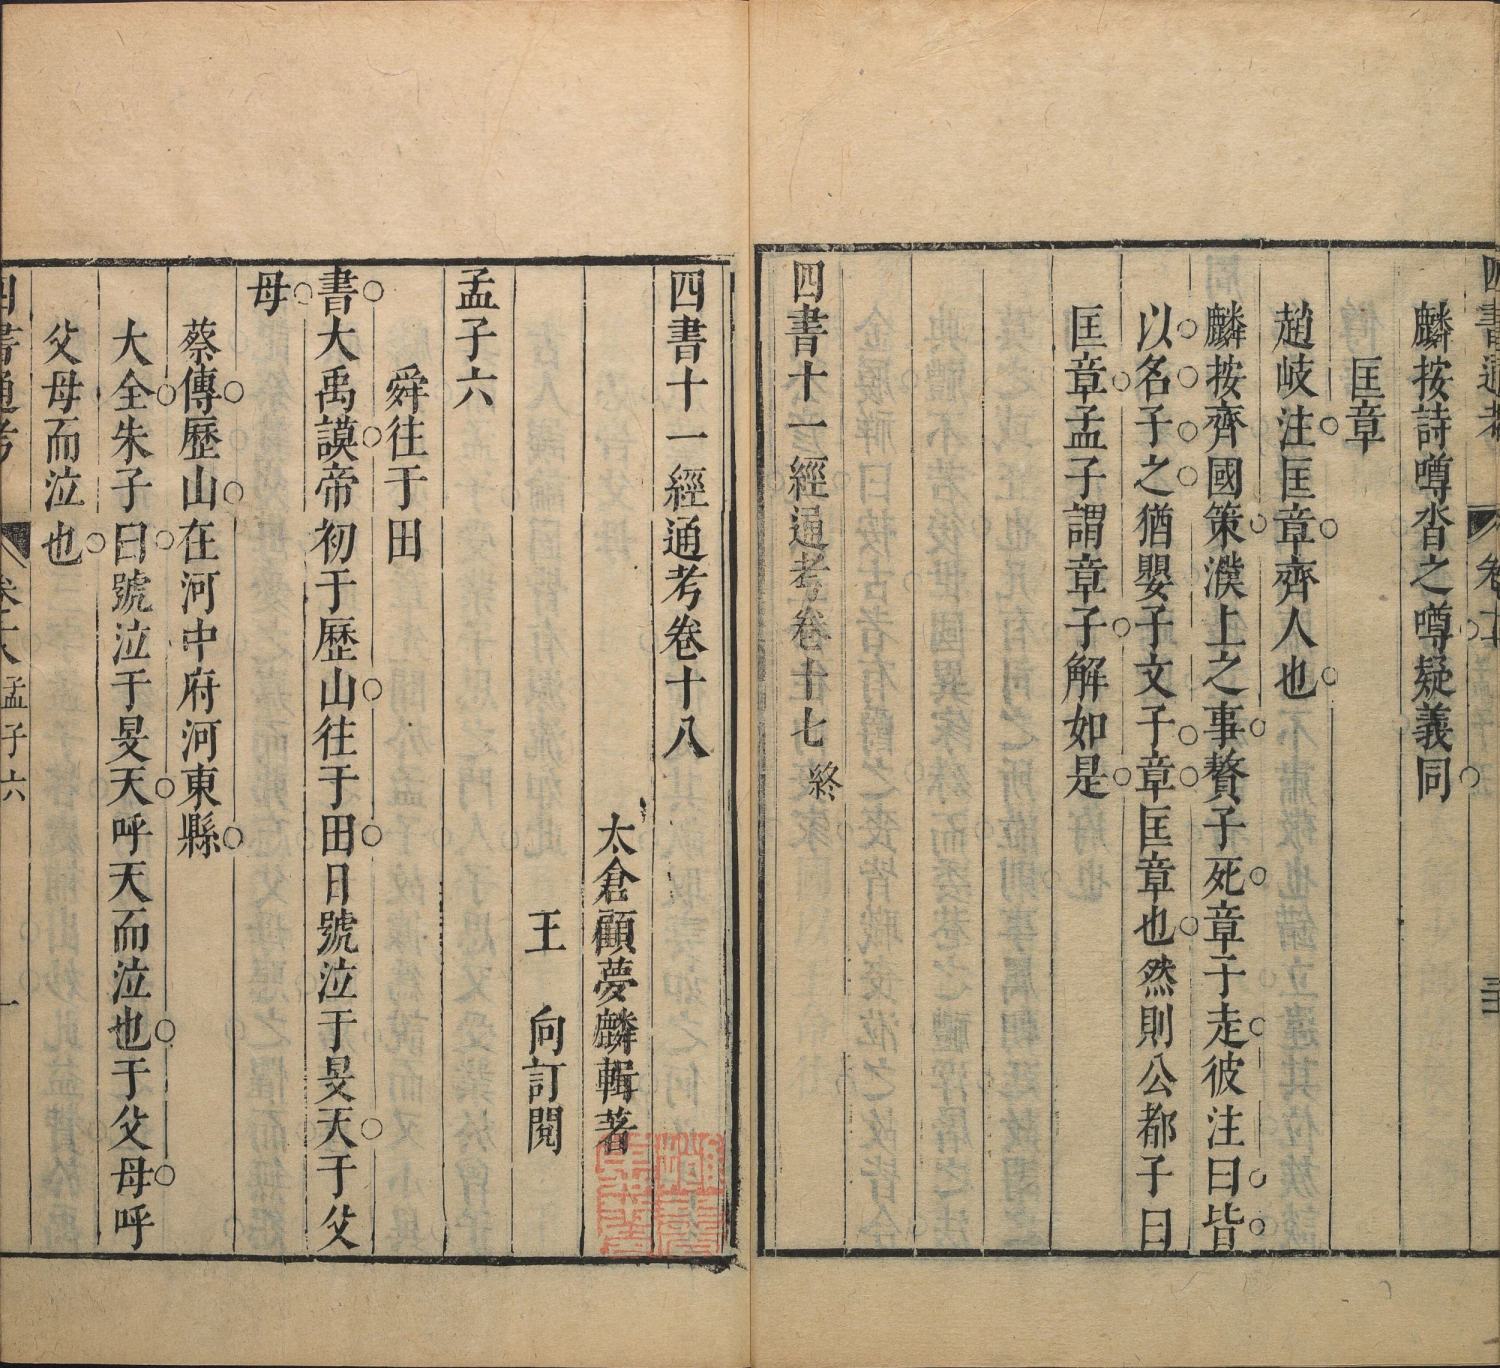 四書通考
麟按詩噂沓之噂疑義同
匡章
趙岐注匡章齊人也
麟按齊國策濮上之事贅子死章子走彼注曰皆
以名子之猶嬰子文子章匡章也然則公都子曰
匡章孟子謂章子解如是
四書十一經通考卷十七終
四書十一經通考卷十八
太倉顧夢麟輯著
王向訂閱
孟子六
舜往于田
書大禹謨帝初于歷山往于田日號泣于旻天于父
母
蔡傳歷山在河中府河東縣
大全朱子曰號泣于旻天呼天而泣也于父母呼
父母而泣也
四書通考 卷十八 孟子六 一